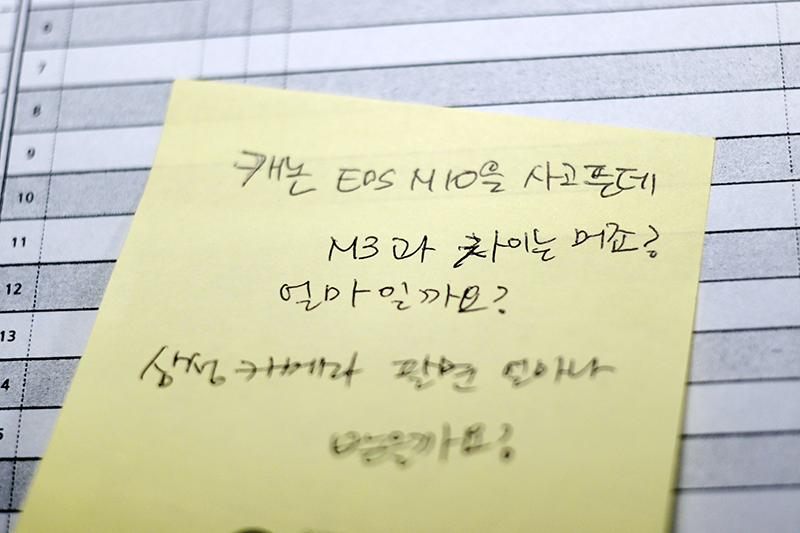 6
7
8
9
10
11
12
13
4
캐논 EOS M10을 사고픈데
M3과 차이는 머죠?
얼마일까요?
삼성 카메라 팔면 얼마나
받을까요?